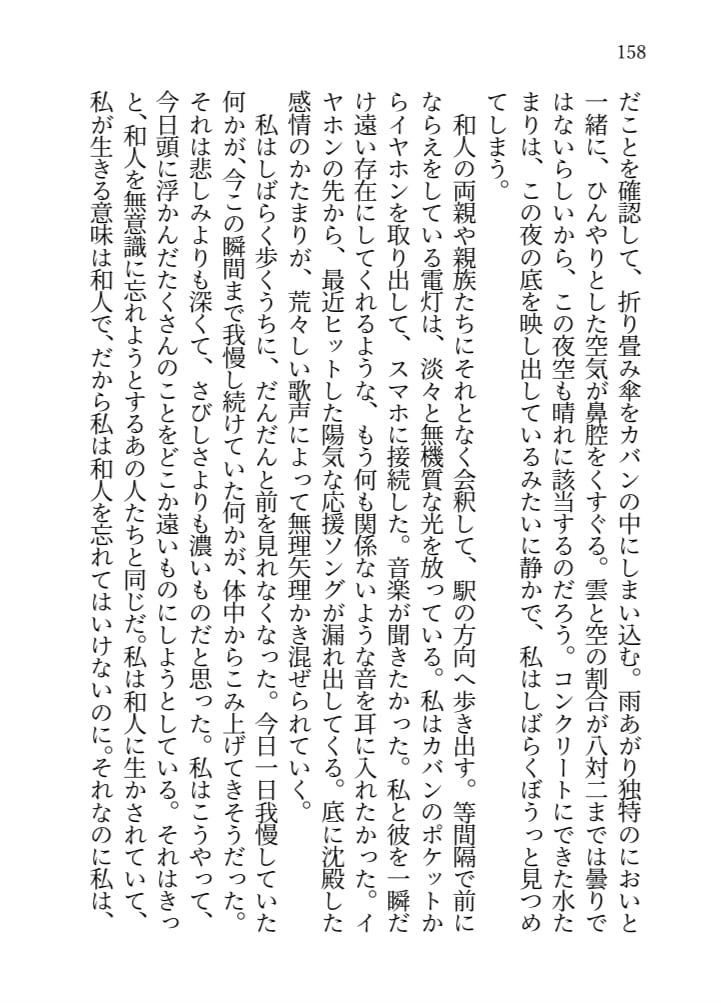 158
だことを確認して、折り畳み傘をカバンの中にしまい込む。雨あがり独特のにおいと
一緒に、ひんやりとした空気が鼻腔をくすぐる。雲と空の割合が八対二までは曇りで
はないらしいから、この夜空も晴れに該当するのだろう。コンクリートにできた水た
まりは、この夜の底を映し出しているみたいに静かで、私はしばらくぼうっと見つめ
てしまう。
和人の両親や親族たちにそれとなく会釈して、駅の方向へ歩き出す。等間隔で前に
ならえをしている電灯は、淡々と無機質な光を放っている。私はカバンのポケットか
らイヤホンを取り出して、スマホに接続した。音楽が聞きたかった。私と彼を一瞬だ
け遠い存在にしてくれるような、もう何も関係ないような音を耳に入れたかった。イ
ヤホンの先から、最近ヒットした陽気な応援ソングが漏れ出してくる。底に沈殿した
感情のかたまりが、荒々しい歌声によって無理矢理かき混ぜられていく。
私はしばらく歩くうちに、だんだんと前を見れなくなった。今日一日我慢していた
何かが、今この瞬間まで我慢し続けていた何かが、体中からこみ上げてきそうだった。
それは悲しみよりも深くて、さびしさよりも濃いものだと思った。私はこうやって、
今日頭に浮かんだたくさんのことをどこか遠いものにしようとしている。それはきっ
と、和人を無意識に忘れようとするあの人たちと同じだ。私は和人に生かされていて、
私が生きる意味は和人で、だから私は和人を忘れてはいけないのに。それなのに私は、